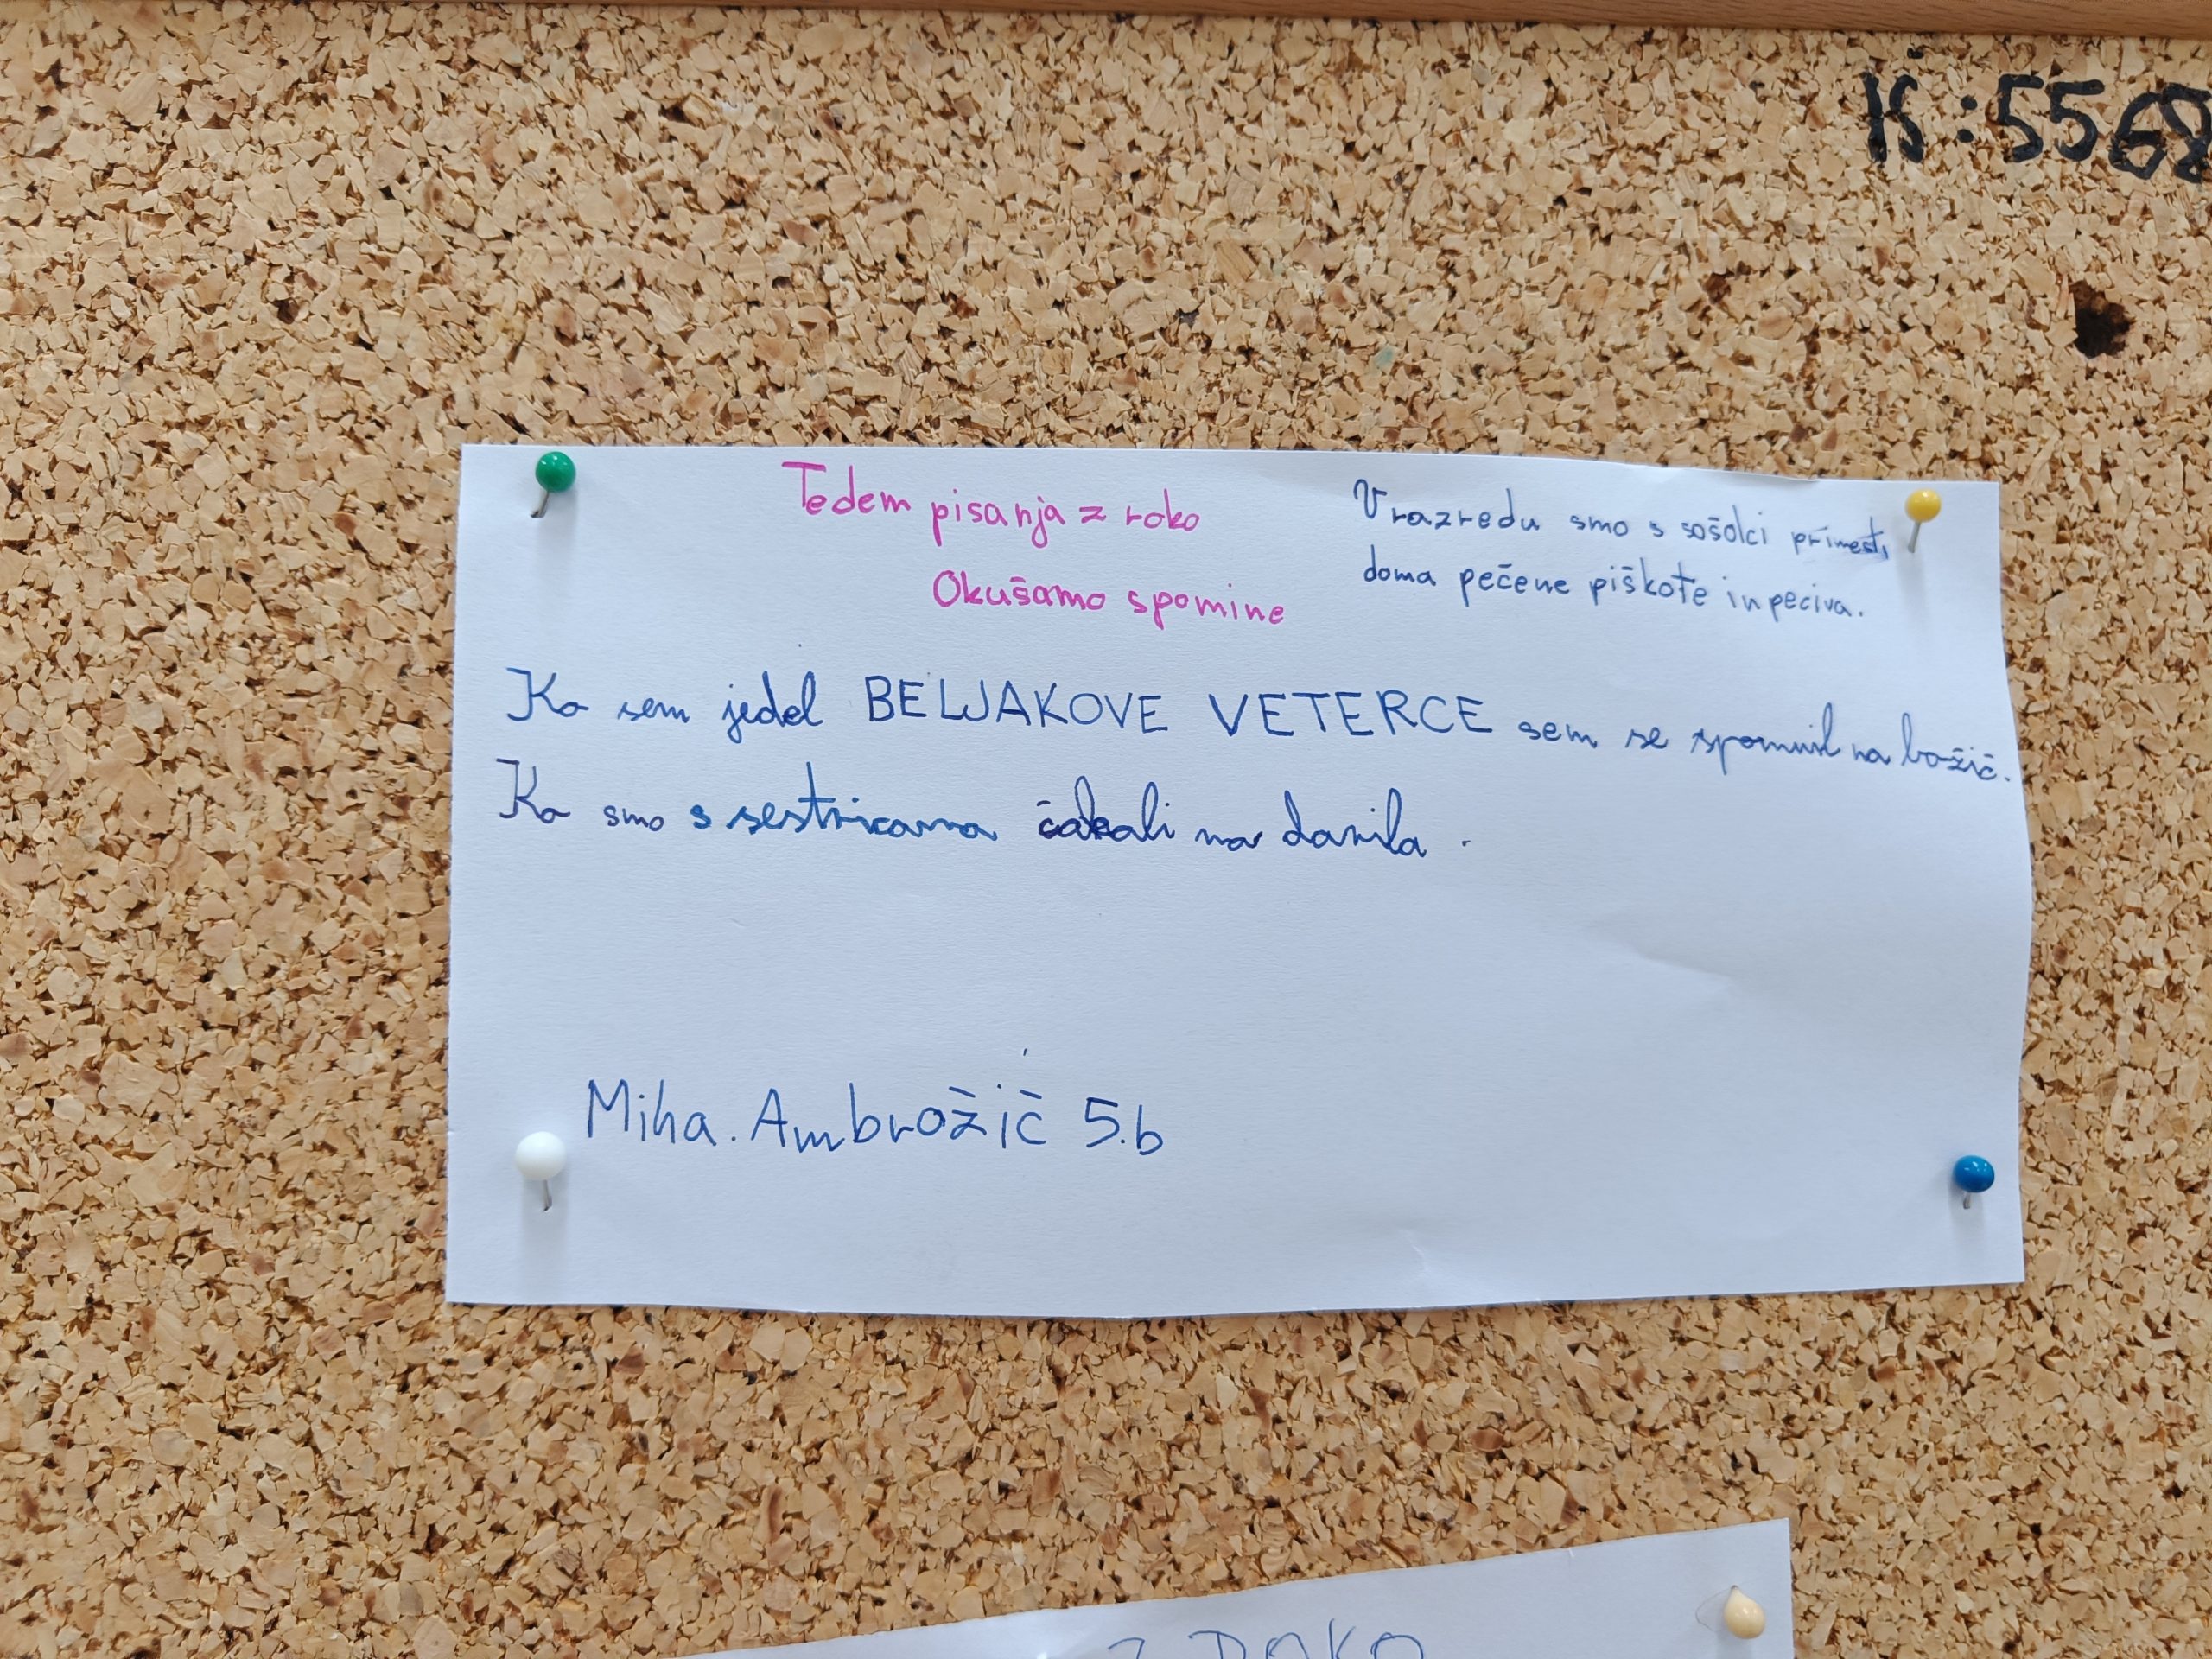 IŠ: 5568
Tedem pisanja z roko
Okušamo spomine
V razredu smo s sošolci prinesli
doma pečene piškote in peciva.
Ko sem jedel BELJAKOVE VETERCE sem se spomnil na božič.
Ko smo s sestricama čakali na darila.
Miha. Ambrožič 5.b
Z ROKO